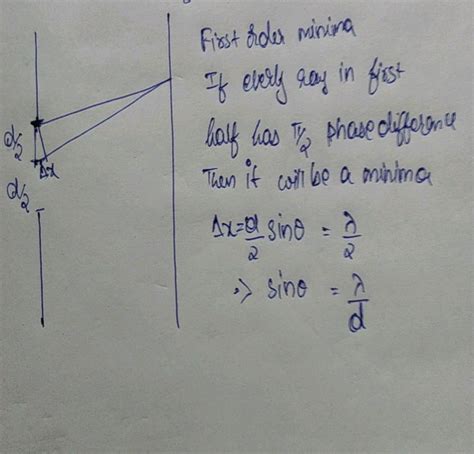 First order minima
If every ray in first
half has π/2 phase difference
Then it will be a minima
d/2
Δx
d/2
Δx = d/2 sinθ = λ/2
⇒ sinθ = λ/d